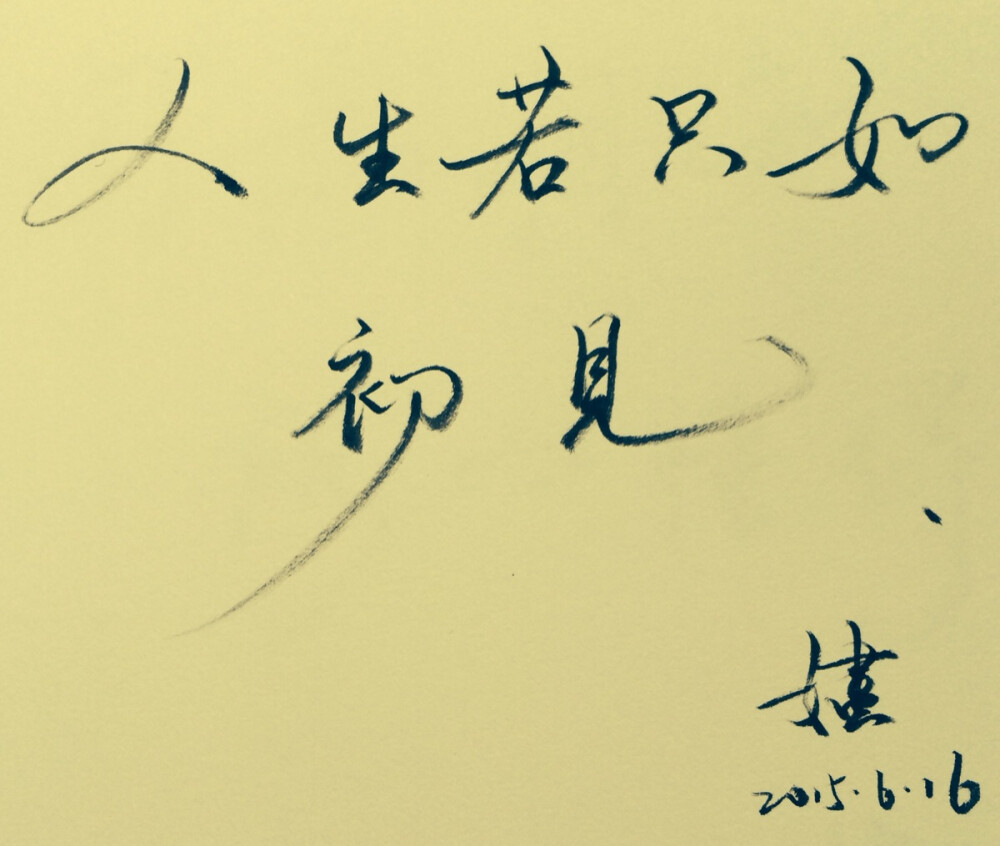 人生若只如
初見、
2015.6.16